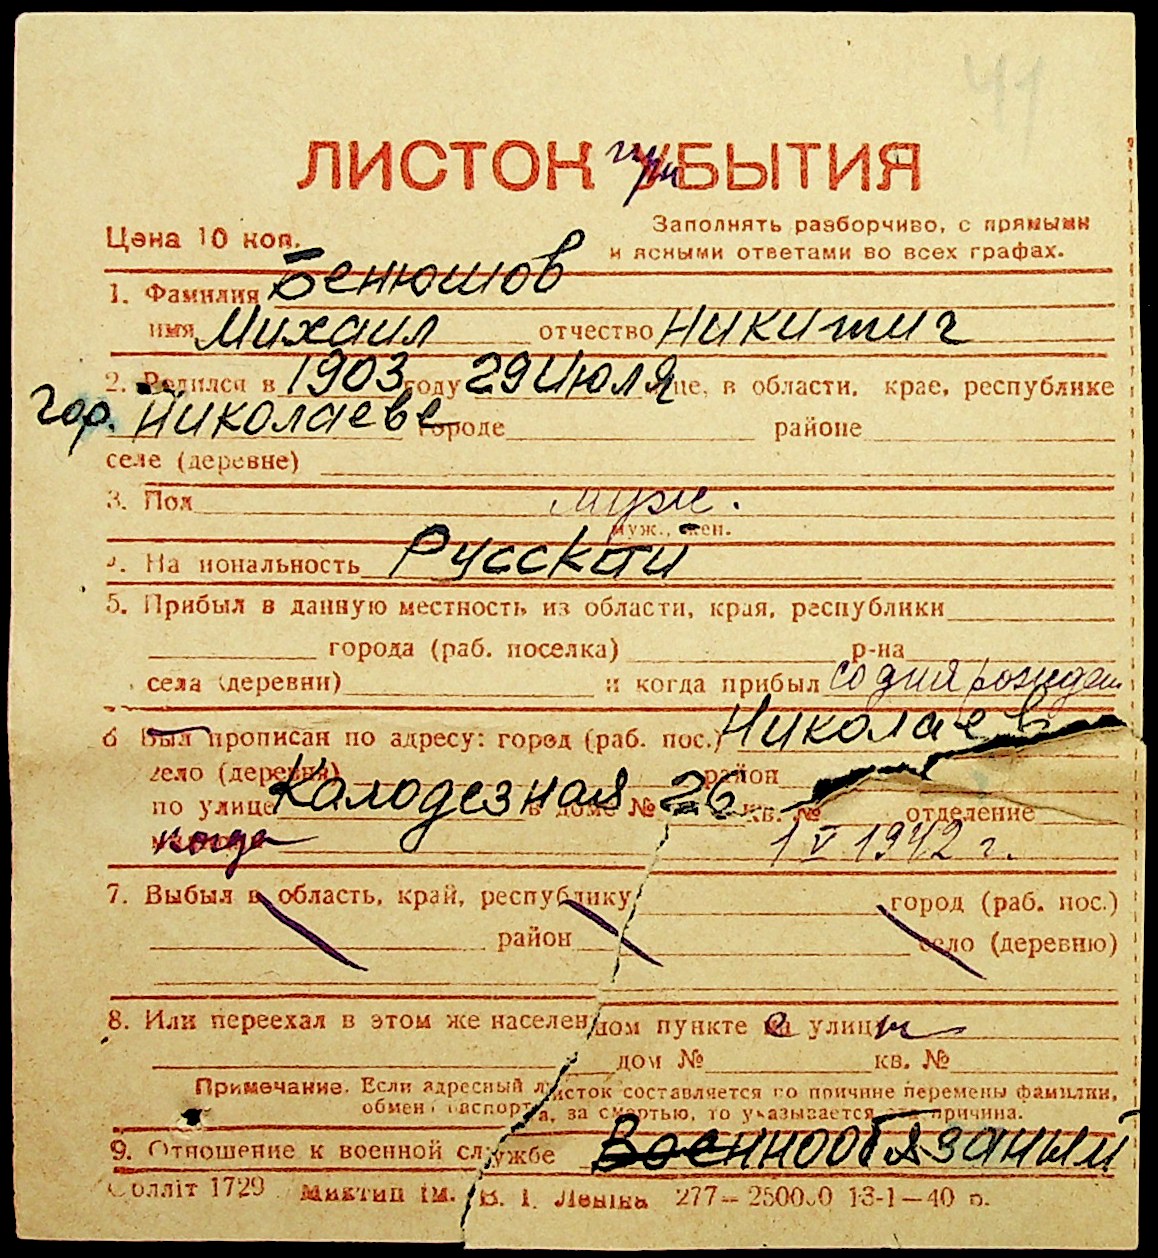 41
ЛИСТОК при УБЫТИЯ
Цена 10 коп.
Заполнять разборчиво, с прямыми
и ясными ответами во всех графах.
1. Фамилия Бенюшов
имя Михаил отчество Никитич
2. Родился в 1903 году 29 Июля в области, крае, республике
гор. Николаеве городе районе
селе (деревне)
3. Пол муж.
муж., жен.
На иональность Русской
5. Прибыл в данную местность из области, края, республики
города (раб. поселка) р-на
села (деревни) и когда прибыл со дня рожден
6 Был прописан по адресу: город (раб. пос.) Николаев
село (деревня) район
по улице Калодезная в доме № 26 кв. № отделение
когда 1 V 1942 г.
7. Выбыл в область, край, республику город (раб. пос.)
район село (деревню)
8. Или переехал в этом же населенном пункте с улицы
дом № кв. №
Примечание. Если адресный листок составляется по причине перемены фамилии,
обмена паспорта, за смертью, то указывается причина.
9. Отношение к военной службе Военнообязаный
Солліт 1729 Миктип ім. В. І. Леніна 277—250000 13-1—40 р.